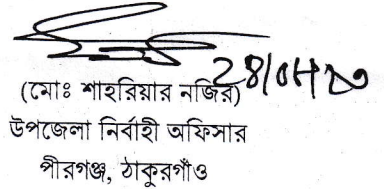 (মোঃ শাহরিয়ার নজির)
উপজেলা নির্বাহী অফিসার
পীরগঞ্জ, ঠাকুরগাঁও